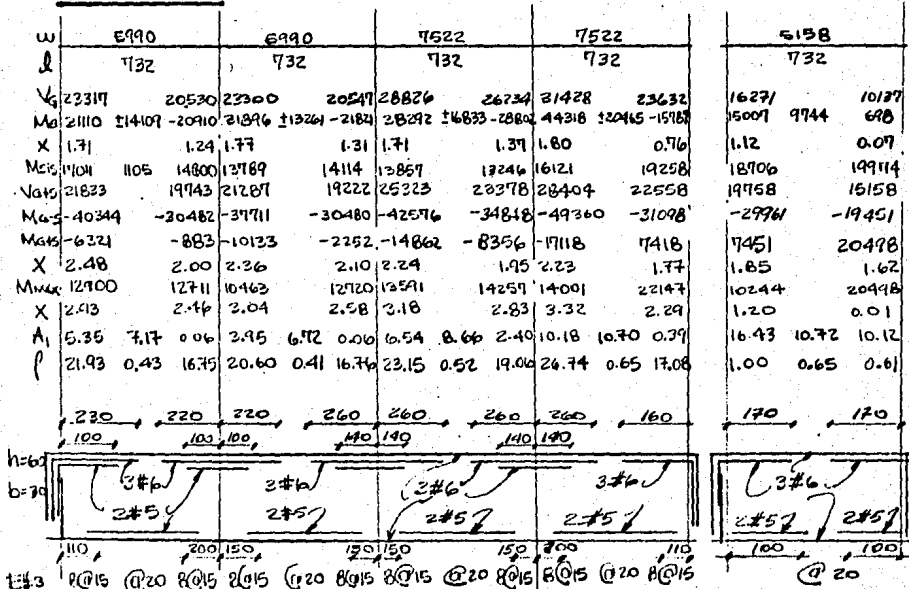 w 6990 6990 7522 7522 5158
l 732 732 732 732
VG 23317 20530 23300 20547 28826 26234 31428 23632 16271 10137
MG 21110 ±14109 -20910 21896 ±13261 -21821 28292 ±16833 -28802 44318 ±20465 -15787 15007 9744 698
X 1.71 1.24 1.77 1.31 1.71 1.37 1.80 0.76 1.12 0.07
17011 1105 14800 13789 14114 13857 13246 16121 19258 18706 199114
21833 19743 21287 19222 25323 23378 28404 22558 19758 15158
-40344 -30482 -37711 -30480 -42576 -34848 -49360 -31098 -29961 -19451
-6321 -883 -10133 -2252 -14862 -8356 -17118 7418 7451 20498
X 2.48 2.00 2.36 2.10 2.24 1.95 2.23 1.77 1.85 1.62
Mmax 12900 12711 10463 12720 13591 14257 14001 22147 10244 20498
X 2.93 2.46 3.04 2.58 3.18 2.83 3.32 2.29 1.20 0.01
A1 5.35 7.17 0.06 3.95 6.72 0.06 6.54 8.66 2.40 10.18 10.70 0.39 16.43 10.72 10.12
ρ 21.93 0.43 16.75 20.60 0.41 16.76 23.15 0.52 19.06 26.74 0.65 17.08 1.00 0.65 0.61
230 220 220 260 260 260 260 160 170 120
100 100 100 140 140 140 140
h=60
b=30 3#6 3#6 3#6 3#6
2#5 2#5 2#5 2#5 2#5 2#5
110 200 150 150 150 150 200 110 100 100
8@15 @20 8@15 8@15 @20 8@15 8@15 @20 8@15 8@15 @20 8@15 @20